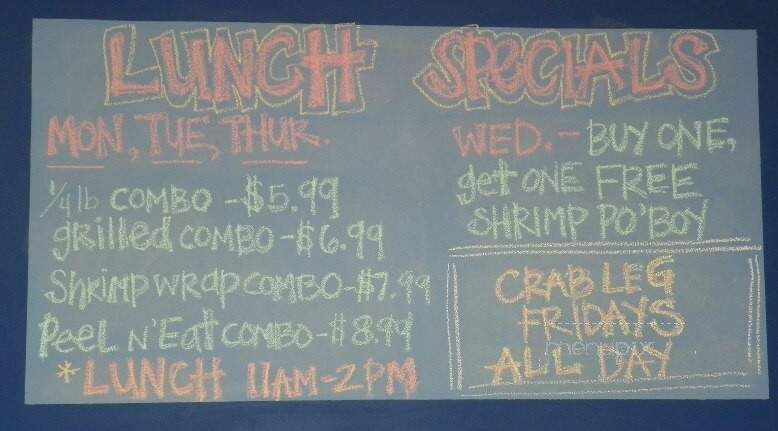 LUNCH SPECIALS
MON, TUE, THUR.
1/4 lb COMBO - $5.99
grilled COMBO - $6.99
Shrimp wrap COMBO - $7.99
Peel N' Eat COMBO - $8.99
* LUNCH 11AM - 2PM
WED. - BUY ONE,
get ONE FREE
SHRIMP PO'BOY
CRAB LEG
FRIDAYS
ALL DAY
menupix